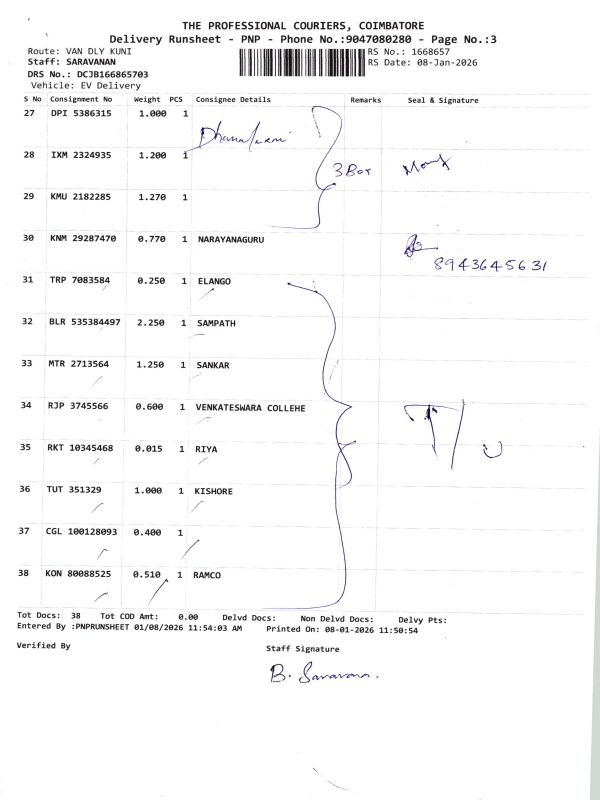 THE PROFESSIONAL COURIERS, COIMBATORE
Delivery Runsheet - PNP - Phone No.:9047080280 - Page No.:3
Route: VAN DLY KUNI RS No.: 1668657
Staff: SARAVANAN RS Date: 08-Jan-2026
DRS No.: DCJB166865703
Vehicle: EV Delivery
S No Consignment No Weight PCS Consignee Details Remarks Seal & Signature
27 DPI 5386315 1.000 1
28 IXM 2324935 1.200 1
3 Box
29 KMU 2182285 1.270 1
30 KNM 29287470 0.770 1 NARAYANAGURU
8943645631
31 TRP 7083584 0.250 1 ELANGO
32 BLR 535384497 2.250 1 SAMPATH
33 MTR 2713564 1.250 1 SANKAR
34 RJP 3745566 0.600 1 VENKATESWARA COLLEHE
35 RKT 10345468 0.015 1 RIYA
36 TUT 351329 1.000 1 KISHORE
37 CGL 100128093 0.400 1
38 KON 80088525 0.510 1 RAMCO
Tot Docs: 38 Tot COD Amt: 0.00 Delvd Docs: Non Delvd Docs: Delvy Pts:
Entered By :PNPRUNSHEET 01/08/2026 11:54:03 AM Printed On: 08-01-2026 11:50:54
Verified By Staff Signature
B. Saravana.